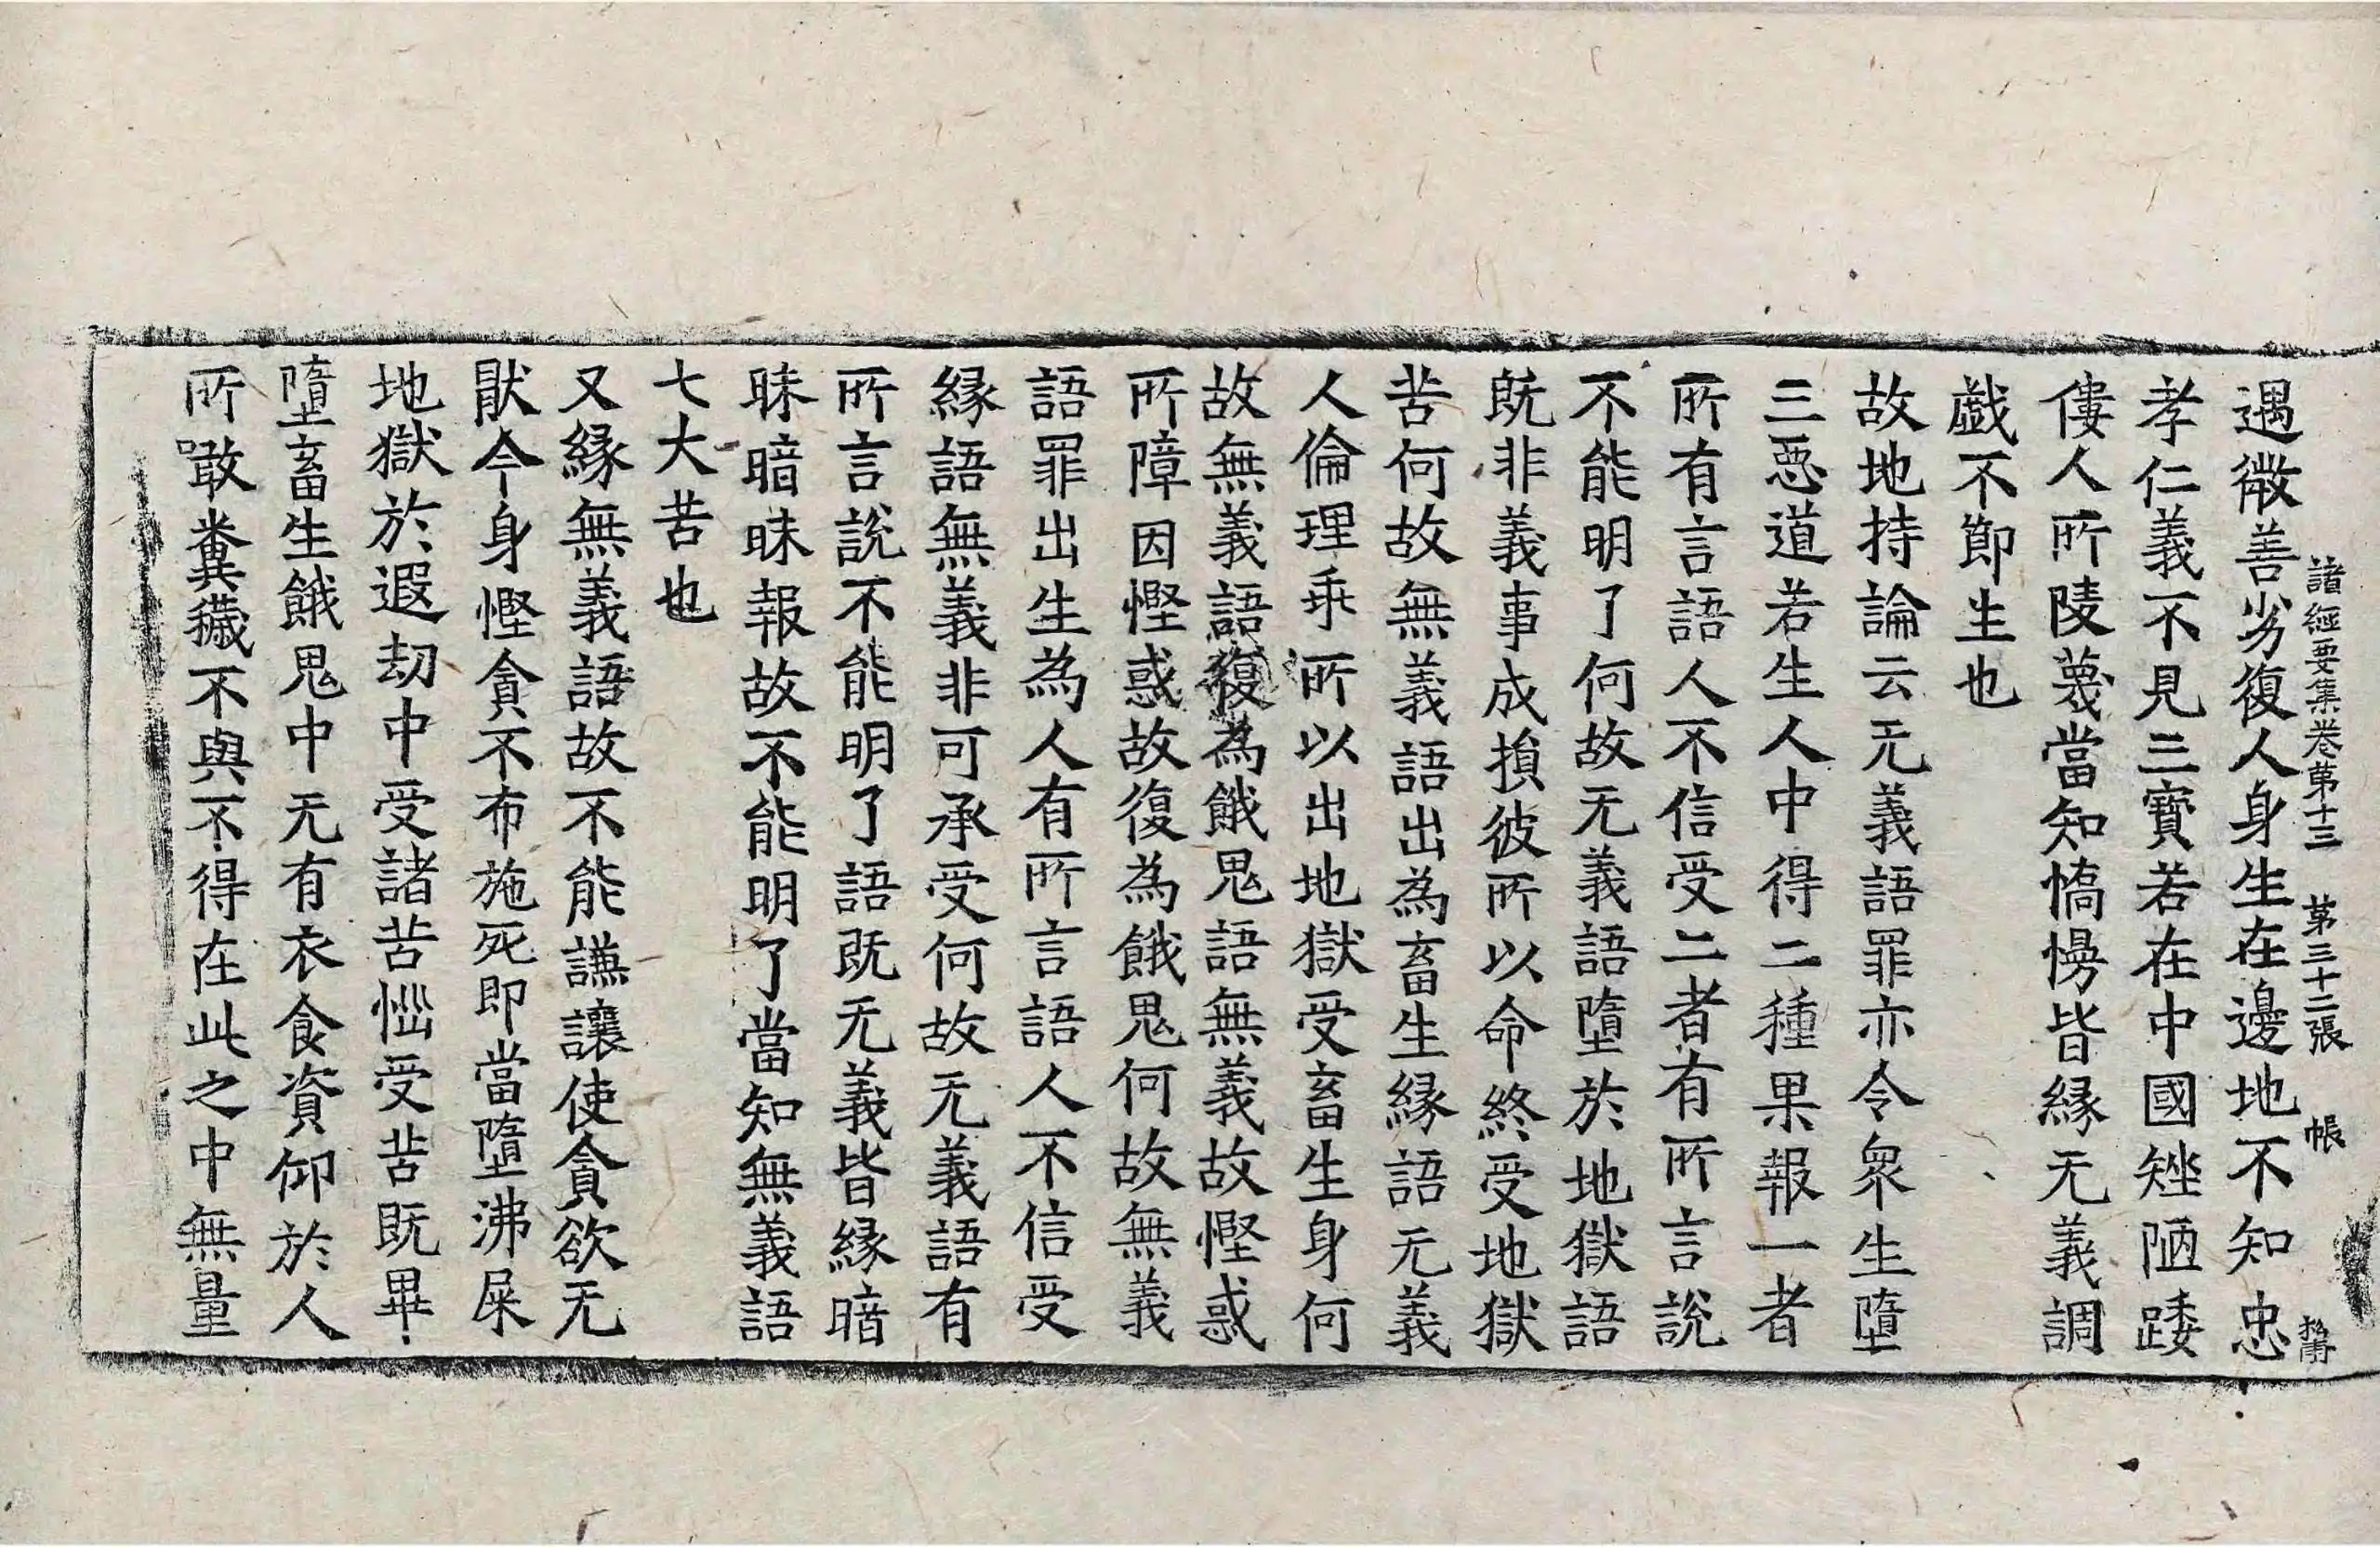 諸經要集卷第十三 第三十二張 帳
遇微善劣復人身生在邊地不知忠
孝仁義不見三寶若在中國矬陋踒
僂人所陵蔑當知憍慢皆緣无義調
戲不節生也
故地持論云无義語罪亦令衆生墮
三惡道若生人中得二種果報一者
所有言語人不信受二者有所言說
不能明了何故无義語墮於地獄語
既非義事成損彼所以命終受地獄
苦何故無義語出為畜生緣語无義
人倫理乖所以出地獄受畜生身何
故無義語復為餓鬼語無義故慳惑
所障因慳惑故復為餓鬼何故無義
語罪出生為人有所言語人不信受
緣語無義非可承受何故无義語有
所言說不能明了語既无義皆緣暗
昧暗昧報故不能明了當知無義語
七大苦也
又緣無義語故不能謙讓使貪欲无
猒今身慳貪不布施死即當墮沸屎
地獄於遐劫中受諸苦惱受苦既畢
墮畜生餓鬼中无有衣食資仰於人
所噉糞穢不與不得在此之中無量